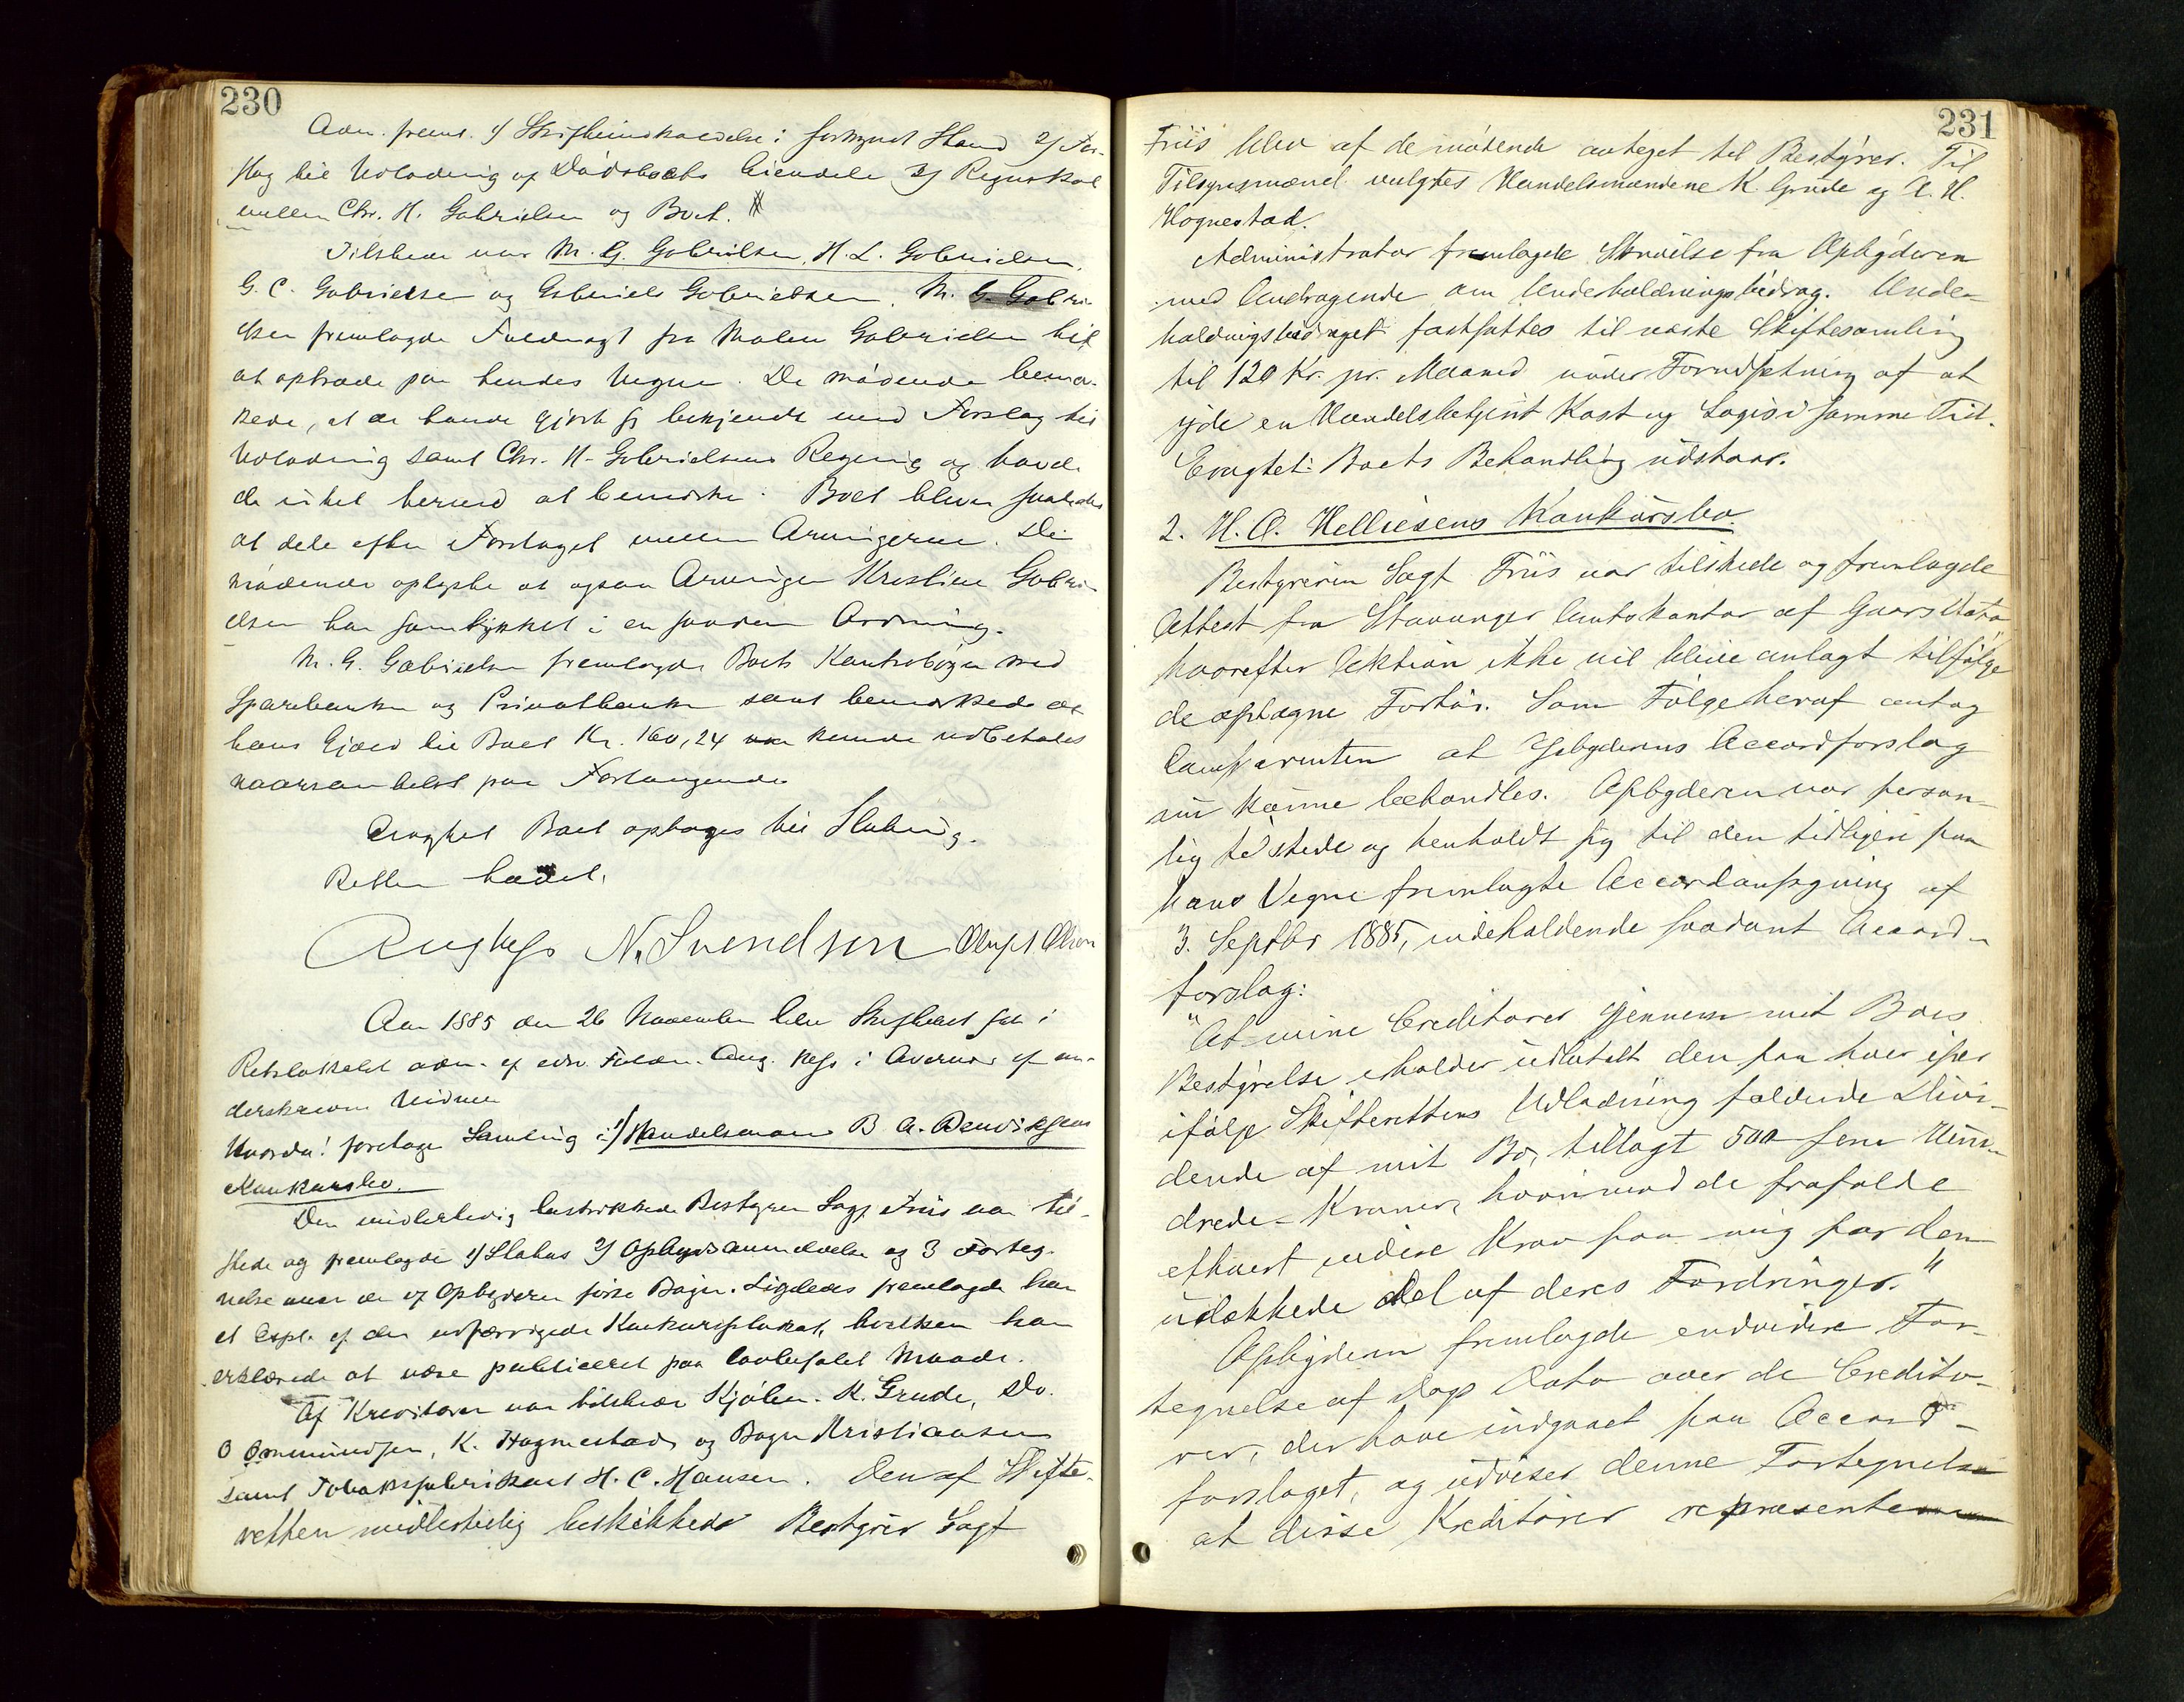 230
Adm. freml. 1/ Skifteindkaldelse i forkyndt Stand 2/ For-
slag til Udlodning af Dødsboets Eiendele 3/ Regnskab
mellem Chr. H. Gabrielsen og Boet.
Tilstede var M. G. Gabrielsen, H. L. Gabrielsen,
G. C. Gabrielsen og Gabriels Gabrielsen. M. G. Gabri-
elsen fremlagde Fuldmagt fra Malene Gabrielsen til
at optræde paa hendes Vegne. De mødende bemær-
kede, at de havde gjort sig bekjendt med Forslag til
Udlodning samt Chr. H. Gabrielsens Regning og havde
de intet herved at bemærke. Boet bliver saaledes
at dele efter Forslaget mellem Arvingerne. De
mødende oplyste at ogsaa Arvingen Kristine Gabri-
elsen har samtykket i en saadan Ordning.
M. G. Gabrielsen fremlagde Boets Kontrabøger med
Sparebanken og Privatbanken samt bemærkede at
hans Gjæld til Boet Kr. 160,24 kunde udbetales
naarsomhelst paa Forlangende
Eragtet Boet optages til Slutning.
Retten hævet.
Aug Kess N. Svendsen Oluf Olsen
Aar 1885 den 26 November blev Skifteret sat i
Retslokalet adm. af edsv. Fuldm. Aug. Kess i Overvær af un-
derskrevne Vidner
Hvorda! foretoges Samling i 1/ Handelsmand B. A. Bendiksens
Konkursbo.
Den midlertidig beskikkede Bestyrer Sagf Friis var til-
stede og fremlagde 1/ Status 2/ Opbudsanmeldelse og 3 Forteg-
nelse over de af Opbyderen førte Bøger. Ligeledes fremlagde han
et Expl. af den udfærdigede Konkursplakat, hvilken han
erklærede at være publiceret paa lovbefalet Maade.
Af Kreditorer var tilstede Kjøbm. K. Grude, Do.
O Ommundsen, K. Hognestad og Bager Kristiansen
samt Tobaksfabrikant H. C. Hansen. Den af Skifte-
retten midlertidig beskikkede Bestyrer Sagf
231
Friis blev af de mødende antaget til Bestyrer. Til
Tilsynsmænd valgtes Handelsmændene K. Grude og A. H.
Hognestad.
Administrator fremlagde Skrivelse fra Opbyderen
med Andragende om Underholdningsbidrag. Under-
holdningsbidraget fastsattes til næste Skiftesamling
til 120 Kr. pr. Maaned under Forudsætning af at
yde en Handelsbetjent Kost og Logis i samme Tid.
Eragtet: Boets Behandling udstaar.
2. H. A. Helliesens Konkursbo.
Bestyreren Sagf Friis var tilstede og fremlagde
Attest fra Stavanger Amtskontor af Gaars Dato
hvorefter Aktion ikke vil blive anlagt tilfølge
de optagne Forhør. Som Følge heraf antog
Comparenten at Opbyderens Accordforslag
nu kunne behandles. Opbyderen var person-
lig tilstede og henholdt sig til den tidligere paa
hans Vegne fremlagte Accordansøgning af
3. Septbr 1885, indeholdende saadant Accord-
forslag:
"At mine Creditorer gjennem mit Boes
Bestyrelse erholder udbetalt den paa hver især
ifølge Skifterettens Udlodning faldende Divi-
dende af mit Bo, tillagt 500 – fem Hun-
drede – Kroner, hvorimod de frafalde
ethvert videre Krav paa mig for den
udækkede Del af deres Fordringer."
Opbyderen fremlagde endvidere For-
tegnelse af Dags Dato over de Credito-
rer, der have indgaaet paa Accord-
forslaget, og udviser denne Fortegnelse
at disse Kreditorer repræsenterer